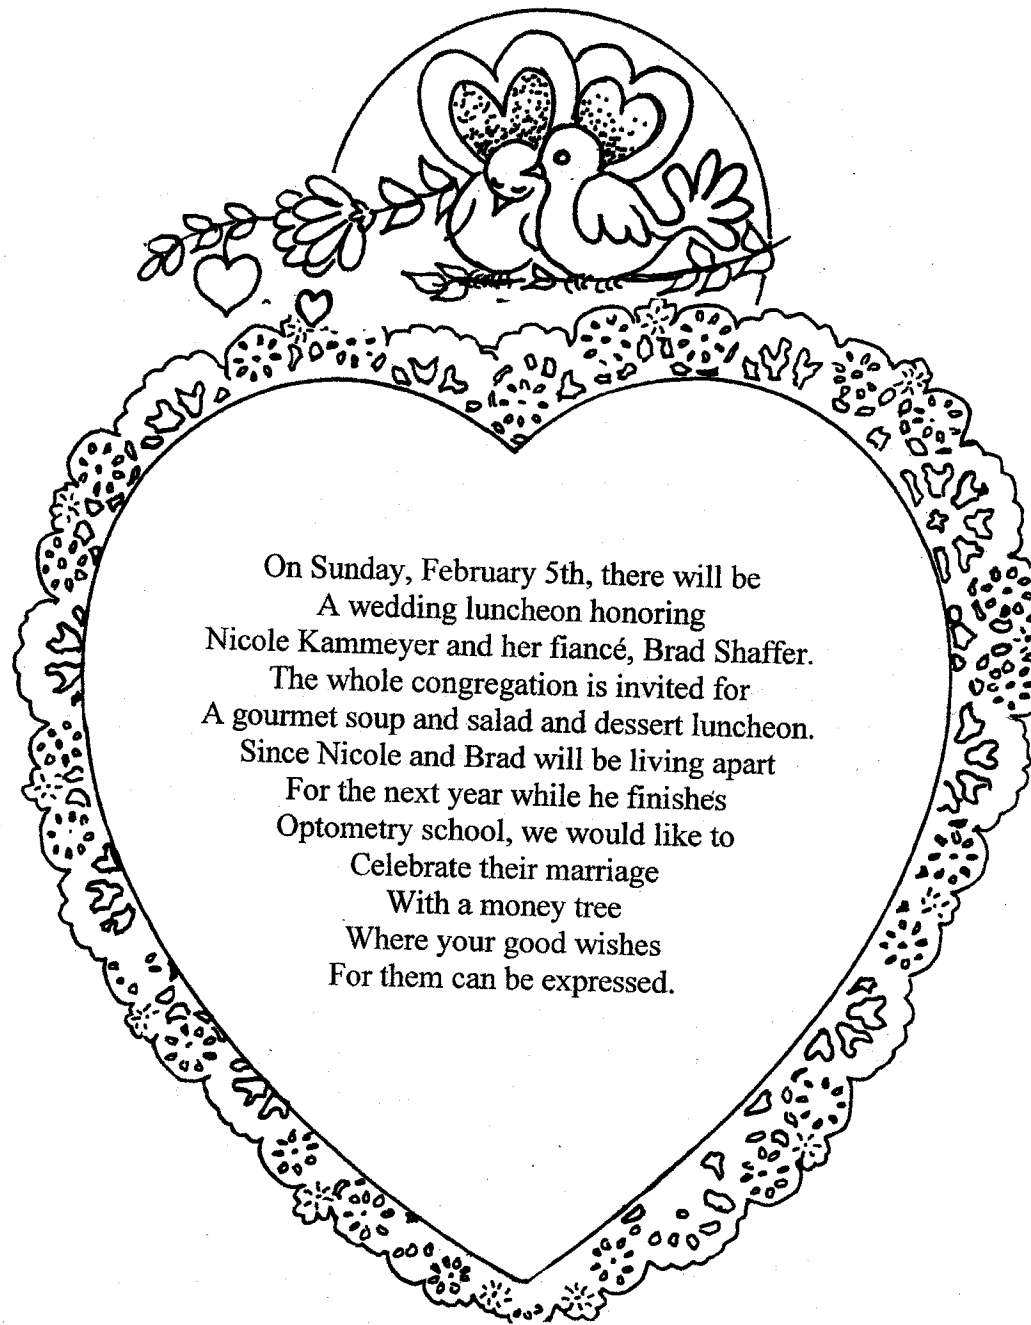 On Sunday, February 5th, there will be
A wedding luncheon honoring
Nicole Kammeyer and her fiancé, Brad Shaffer.
The whole congregation is invited for
A gourmet soup and salad and dessert luncheon.
Since Nicole and Brad will be living apart
For the next year while he finishes
Optometry school, we would like to
Celebrate their marriage
With a money tree
Where your good wishes
For them can be expressed.